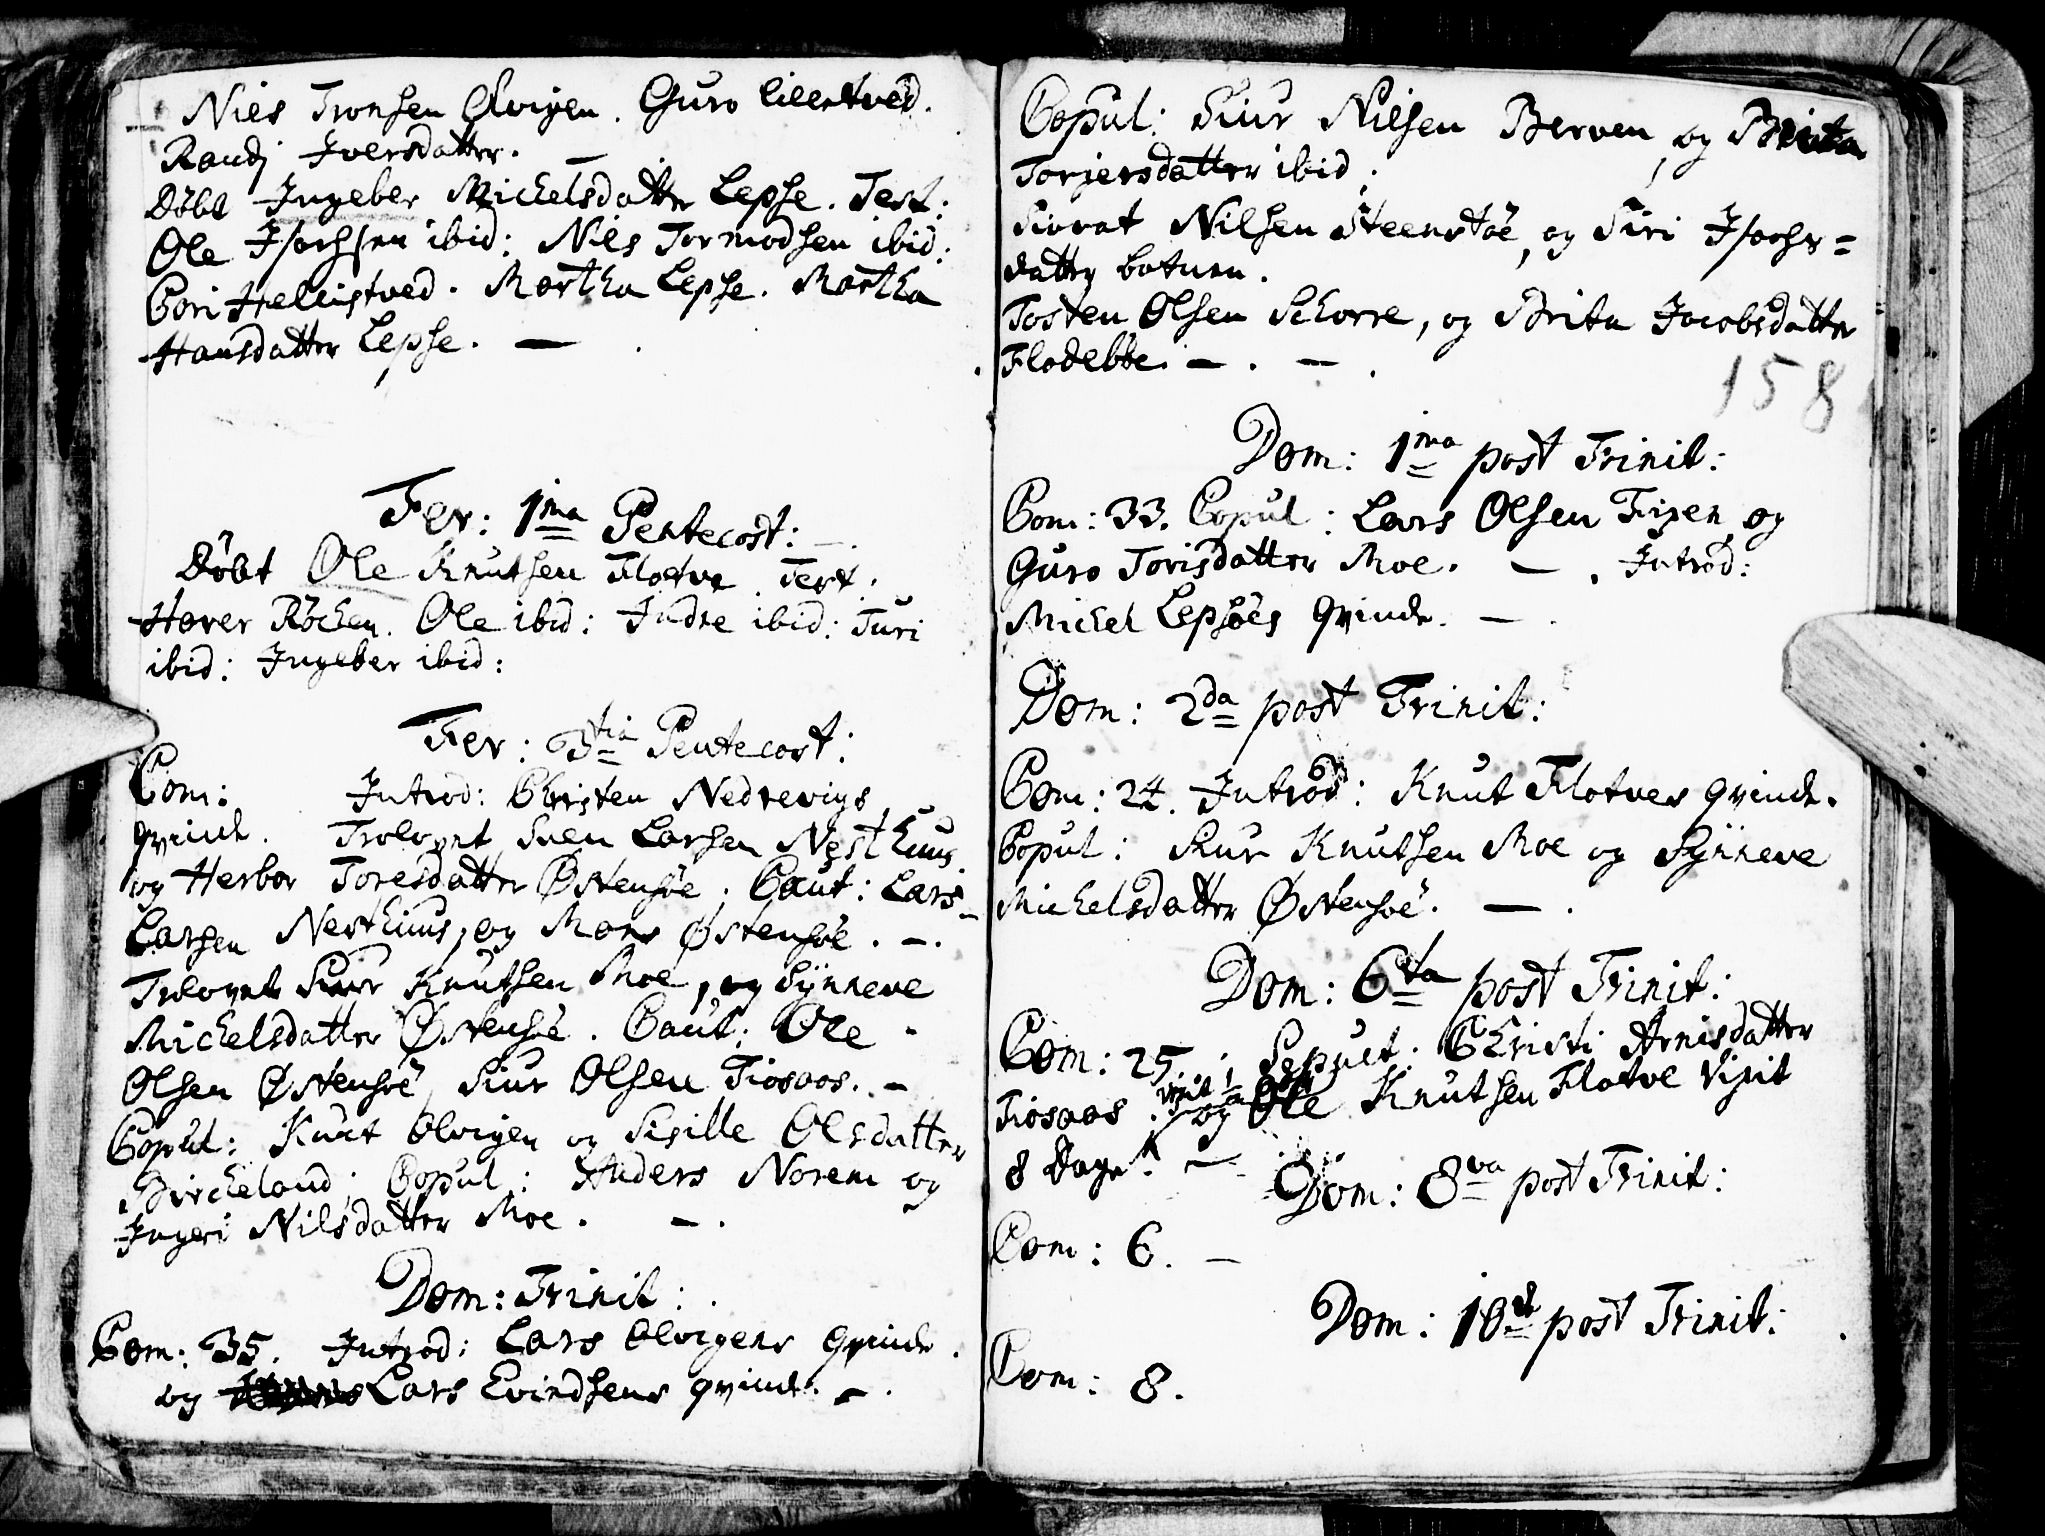 Niels Tronsen Ølvigen. Guro lilletved.
Randj Iversdatter.
Døbt Ingeber Michelsdatter Lepse. Test:
Ole Isachsen ibid: Niels Tormodsen ibid:
Cori Hellistved. Martha Lepse. Martha
Hansdatter Lepse. —
Fer: 1ma Pentecost: —.
Døbt Ole Knutsen Flotve. Test.
Haver Røchen. Ole ibid: Indre ibid: Turi
ibid: Ingeber ibid:
Fer: 3tia Pentecost:
Com: Introd: Christen Nedrevigs
qvinde. Trolovet Sven Larsen Nesthuus
og Herbor Toresdatter Østensøe. Caut: Lars
Larsen Nesthuus, og Mons Østensøe. —.
Trolovet Siur Knutsen Moe, og Synneve
Michelsdatter Østensøe. Caut: Ole
Olsen Østensøe Siur Olsen Tiosaas. —
Copul: Knut Olvigen og Sisille Olsdatter
Bircheland; Copul: Anders Norem og
Ingeri Nilsdatter Moe. —.
Dom: Trinit:
Com: 35. Introd: Lars Olvigens qvinde.
og Lars Evindsens qvinde. —.
Copul: Siur Nilsen Berven, og Brita
Torjersdatter ibid.
Sivrat Nilsen Steenstøe, og Siri Isachs=
datter botnen.
Tosten Olsen Schorre, og Brita Jacobsdatter
Flodebbe. —. —.
158
Dom: 1ma post Trinit:
Com: 33. Copul: Lars Olsen Fixen og
Guro Torisdatter Moe. —. Introd:
Michel Lepsøes qvinde. —.
Dom: 2da post Trinit:
Com: 24. Introd: Knut Flotves qvinde.
Copul: Siur Knutsen Moe og Synneve
Michelsdatter Østensøe. —.
Dom: 6ta post Trinit:
Com: 25. Sepult: Christi Arnisdatter
Tiosaas. og Ole Knutsen Flotve vixit
8 Dage. —
Dom: 8va post Trinit:
Com: 6. —
Dom: 10 post Trinit:
Com: 8.